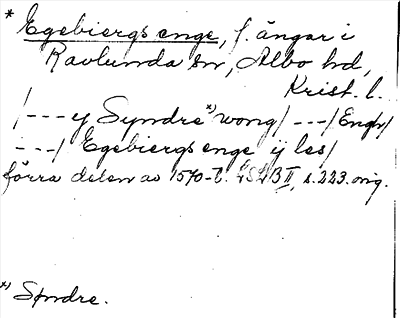 * Egebiergs enge, f. ängar i
Ravlunda sn, Albo hd,
Krist. l.
/---y Syndre*) wong/---/Engh/
---/ Egebiergs enge ij les/
förra delen av 1570-t. LSLB II, s. 223. orig.
*) Søndre.